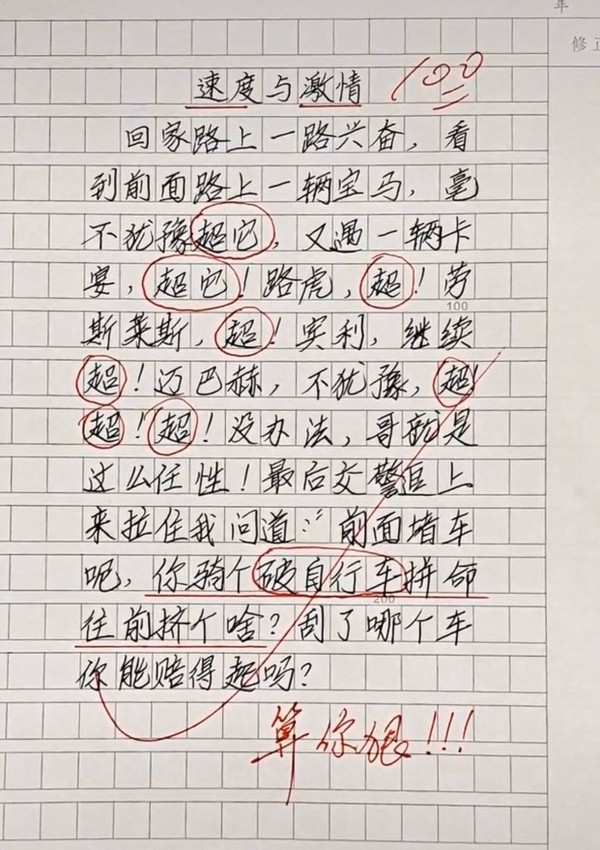 年
修正
速度与激情 100
回家路上一路兴奋，看
到前面路上一辆宝马，毫
不犹豫超它，又遇一辆卡
宴，超它！路虎，超！劳
100
斯莱斯，超！宾利，继续
超！迈巴赫，不犹豫，超！
超！超！没办法，哥就是
这么任性！最后交警追上
来拉住我问道：“前面堵车
呢，你骑个破自行车拼命
200
往前挤个啥？刮了哪个车
你能赔得起吗？
算你狠!!!